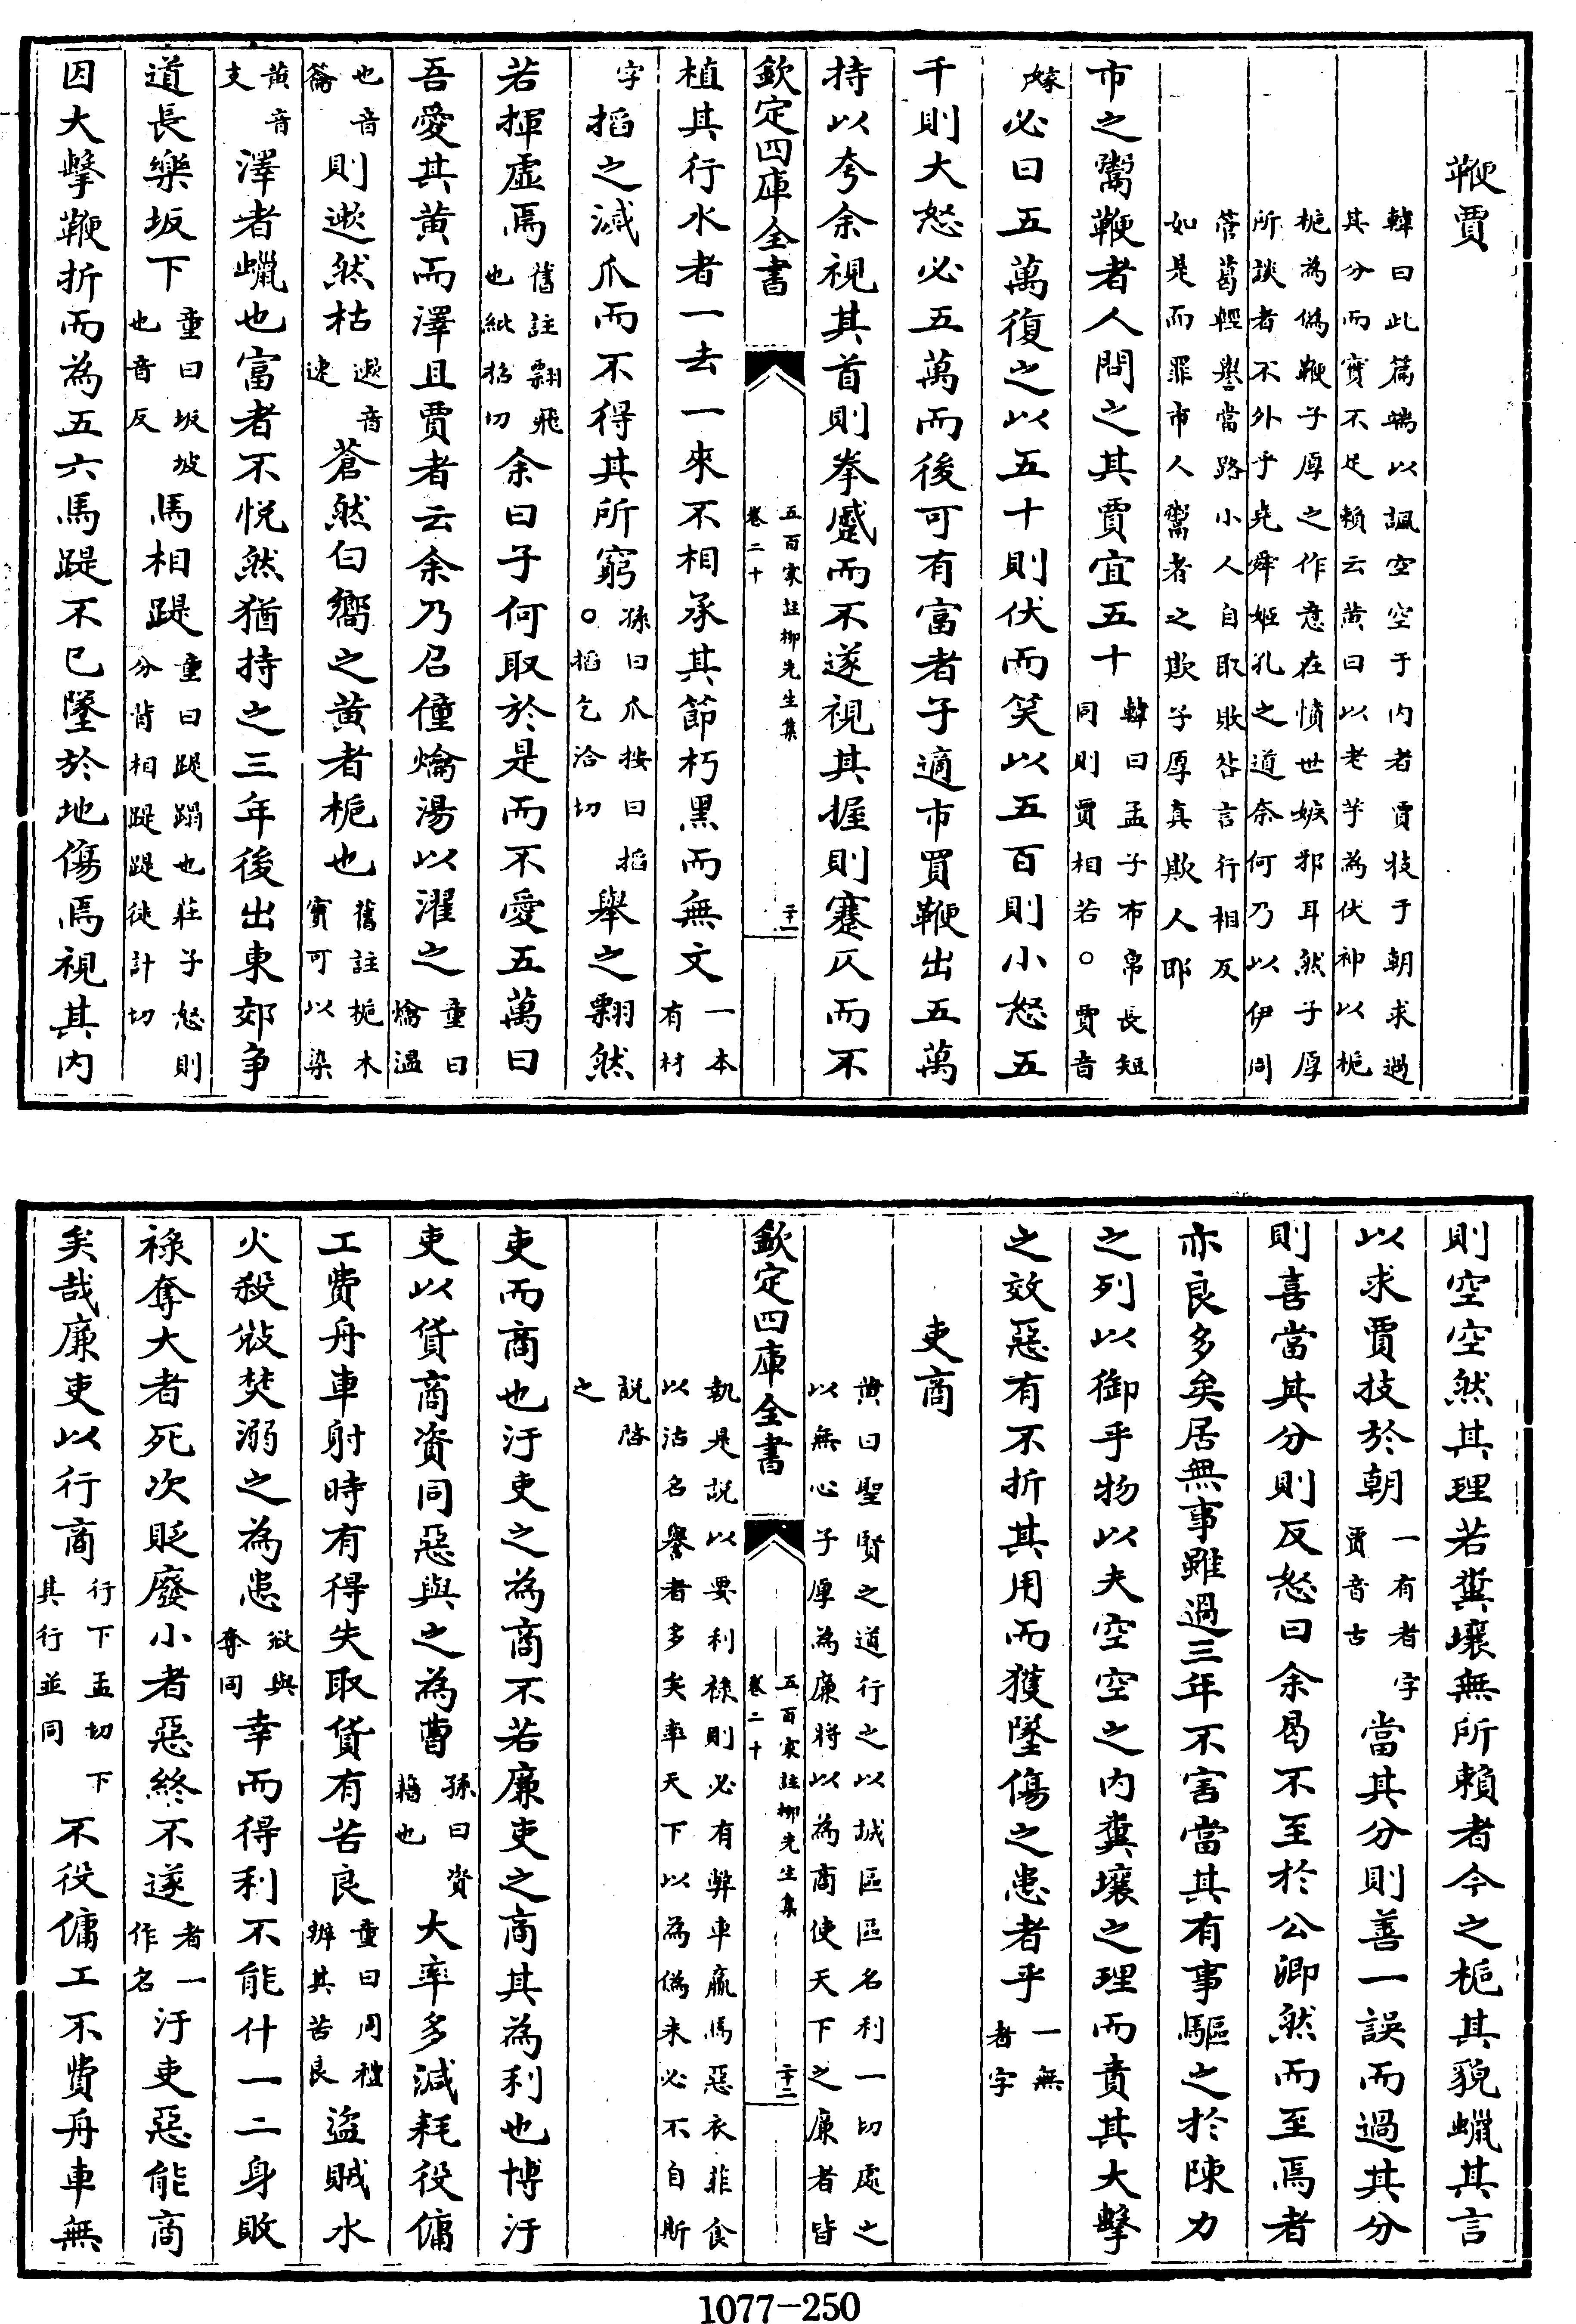 鞭賈
韓曰此篇端以諷空空于内者賈技于朝求過
其分而實不足賴云黄曰以老芋為伏神以梔
梔為僞鞭子厚之作意在憤世嫉邪耳然子厚
所談者不外乎堯舜姬孔之道奈何乃以伊周
管葛輕譽當路小人自取敗咎言行相反
如是而罪市人鬻者之欺子厚真欺人耶
市之鬻鞭者人問之其賈宜五十韓曰孟子布帛長短同則賈相若○賈音
嫁必曰五萬復之以五十則伏而笑以五百則小怒五
千則大怒必五萬而後可有富者子適市買鞭出五萬
持以夸余視其首則拳蹙而不遂視其握則蹇仄而不
欽定四庫全書
五百家註柳先生集
卷二十
二十一
植其行水者一去一來不相承其節朽黑而無文一本有材
字搯之滅爪而不得其所窮孫曰爪按曰搯○搯乞洽切舉之翲然
若揮虚焉舊註翲飛也紕招切余曰子何取於是而不愛五萬曰
吾愛其黄而澤且賈者云余乃召僮爚湯以濯之童曰爚溫
也音籥則遬然枯遬音速蒼然白嚮之黄者梔也舊註梔木實可以染
黄音支澤者蠟也富者不悦然猶持之三年後出東郊争
道長樂坂下童曰坂坡也音反馬相踶童曰踶蹋也莊子怒則分背相踶踶徒計切
因大擊鞭折而為五六馬踶不已墜於地傷焉視其内
則空空然其理若糞壤無所賴者今之梔其貌蠟其言
以求賈技於朝一有者字賈音古當其分則善一誤而過其分
則喜當其分則反怒曰余曷不至於公卿然而至焉者
亦良多矣居無事雖過三年不害當其有事驅之於陳力
之列以御乎物以夫空空之内糞壤之理而責其大擊
之效惡有不折其用而獲墜傷之患者乎一無者字
吏商
黄曰聖賢之道行之以誠區區名利一切處之
以無心子厚為廉將以為商使天下之廉者皆
欽定四庫全書
五百家註柳先生集
卷二十
二十二
執是説以要利禄則必有弊車羸馬惡衣菲食
以沽名譽者多矣率天下以為僞未必不自斯
説啓
之
吏而商也汙吏之為商不若廉吏之商其為利也博汙
吏以貨商資同惡與之為曹孫曰資藉也大率多減耗役傭
工費舟車射時有得失取貨有苦良童曰周禮辨其苦良盜賊水
火殺敚焚溺之為患敚與奪同幸而得利不能什一二身敗
禄奪大者死次貶廢小者惡終不遂者一作名汙吏惡能商
矣哉廉吏以行商行下孟切下其行並同不役傭工不費舟車無
1077-250